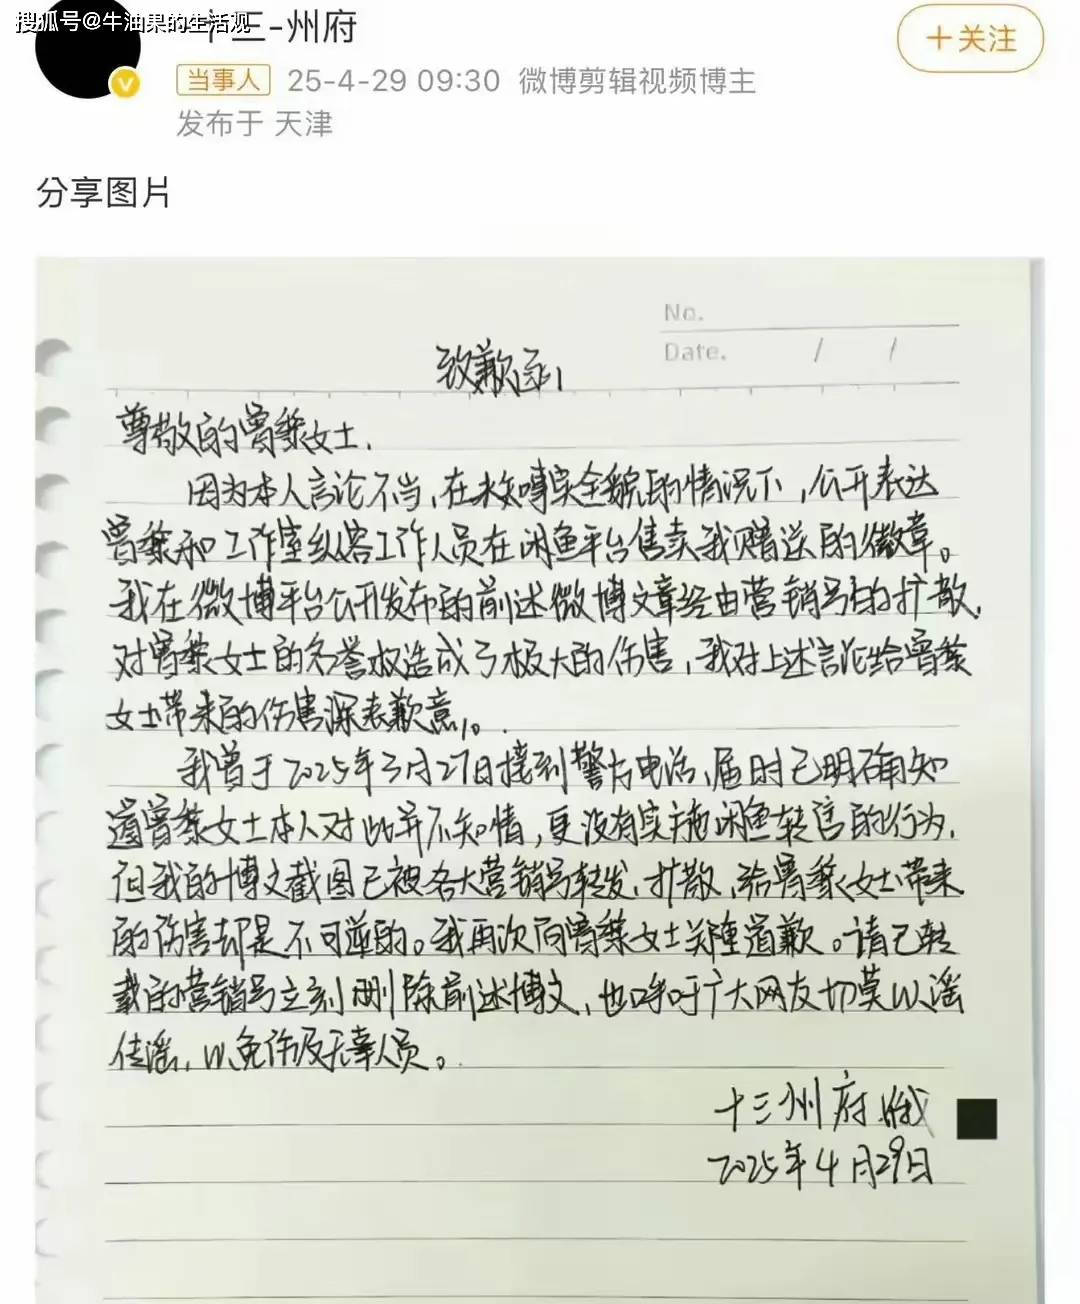 搜狐号@牛油果的生活观
十三-州府
+关注
当事人 25-4-29 09:30 微博剪辑视频博主
发布于 天津
分享图片
No.
Date. / /
致歉函
尊敬的曾黎女士,
因为本人言论不当,在未知事实全貌的情况下,公开表达
曾黎和工作室纵容工作人员在闲鱼平台售卖我赠送的徽章。
我在微博平台公开发布的前述微博文章经由营销号的扩散,
对曾黎女士的名誉权造成了极大的伤害,我对上述言论给曾黎
女士带来的伤害深表歉意。
我曾于2025年3月27日接到警方电话,届时已明确知
道曾黎女士本人对此并不知情,更没有实施闲鱼转售的行为,
但我的博文截图已被各大营销号转发、扩散,给曾黎女士带来
的伤害却是不可逆的。我再次向曾黎女士郑重道歉。请已转
载的营销号立刻删除前述博文,也呼吁广大网友切莫以谣
传谣,以免伤及无辜人员。
十三州府
2025年4月29日